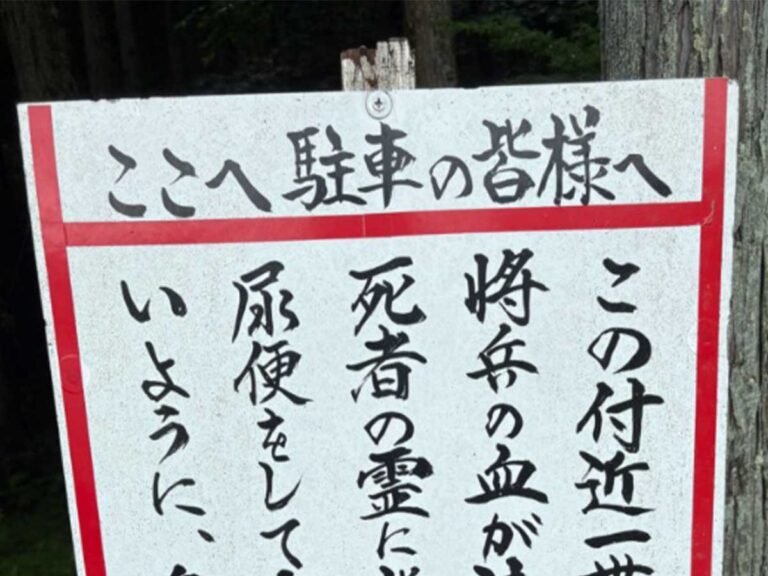 ここへ駐車の皆様へ
この付近一帯
将兵の血が
死者の霊に
尿便をして
いように、